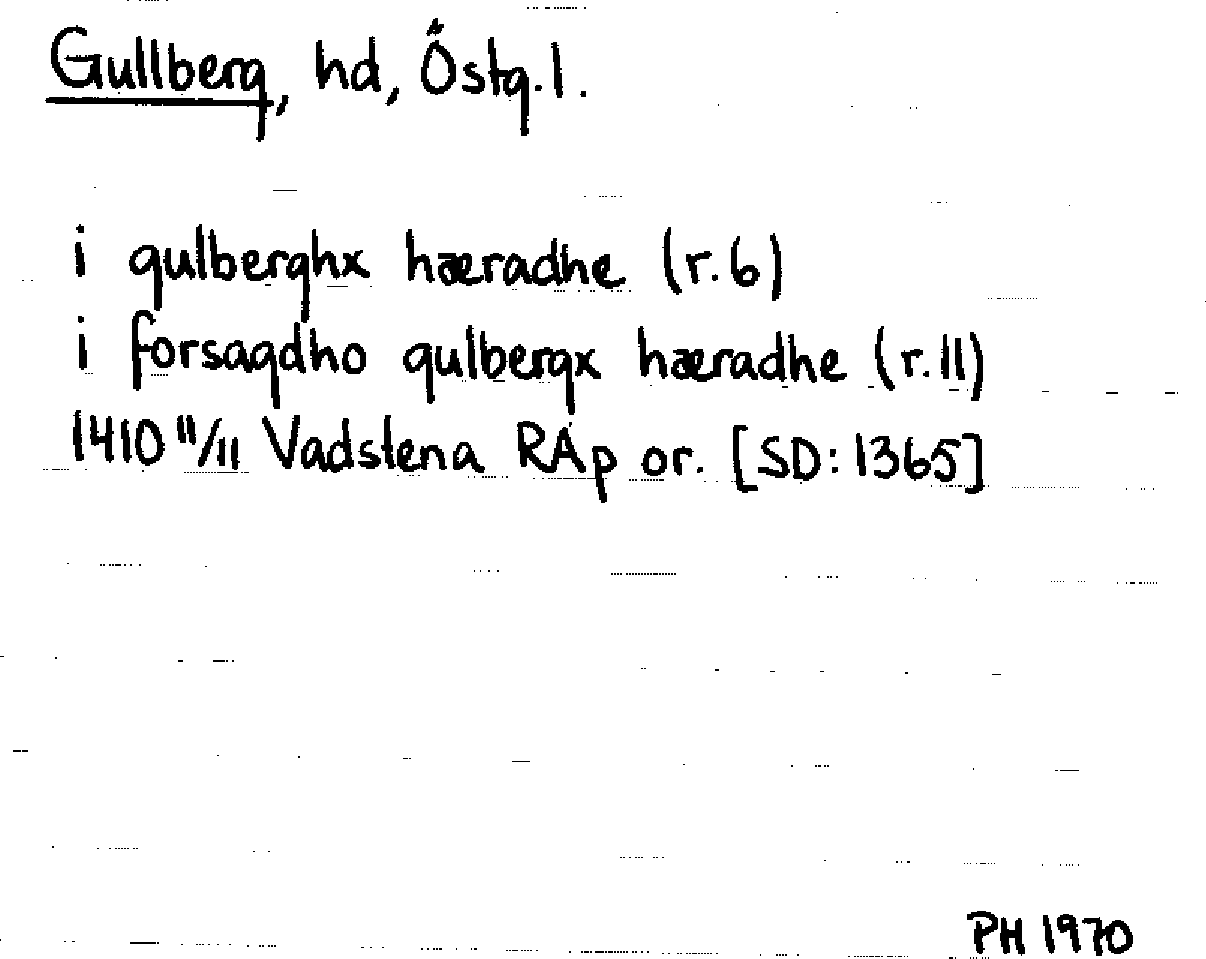 Gullberg, hd, Östg.l.
i gulberghx hæradhe (r.6)
i forsagdho gulbergx hæradhe (r.11)
1410 11/11 Vadstena RAp or. [SD: 1365]
PH 1970